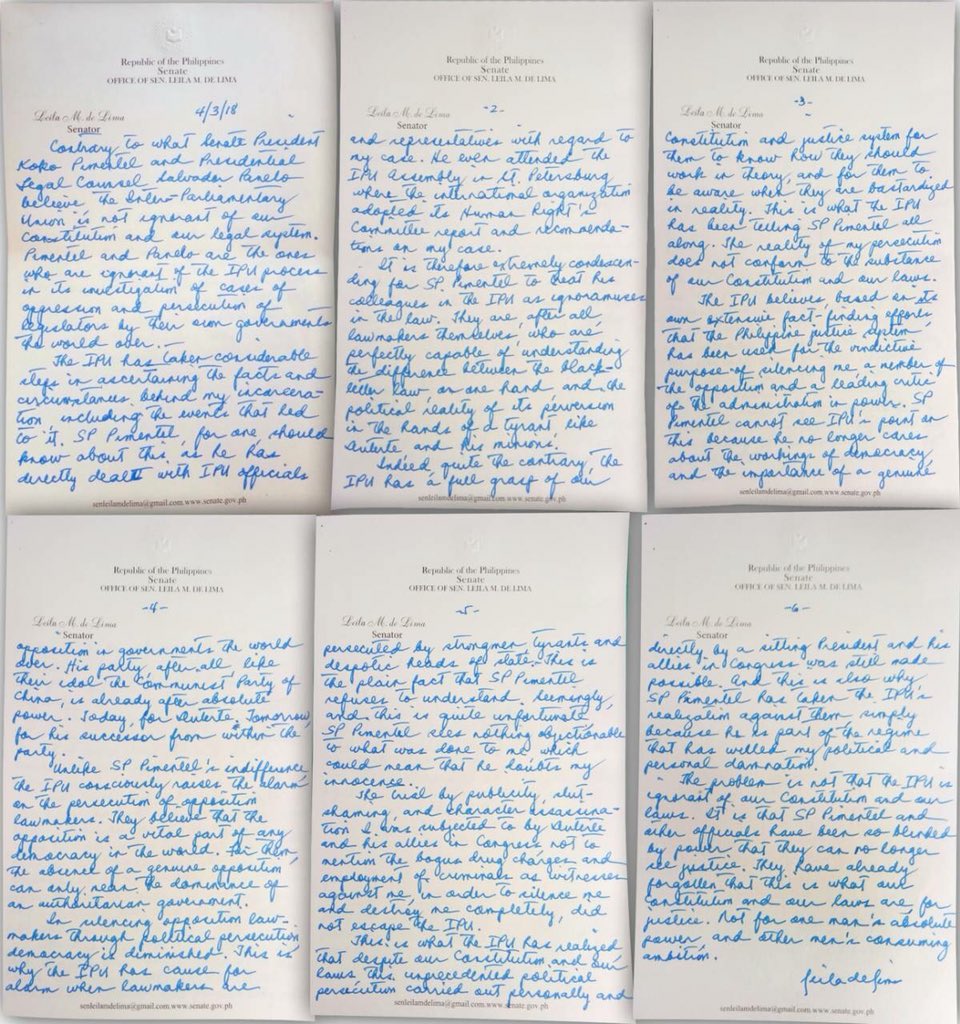 Republic of the Philippines
Senate
OFFICE OF SEN. LEILA M. DE LIMA
4/3/18
Leila M. de Lima
Senator
Contrary to what Senate President
Koko Pimentel and Presidential
Legal Counsel Salvador Panelo
believe the Inter-Parliamentary
Union is not ignorant of our
Constitution and our legal system.
Pimentel and Panelo are the ones
who are ignorant of the IPU process
in its investigation of cases of
oppression and persecution of
legislators by their own governments
the world over.
The IPU has taken considerable
steps in ascertaining the facts and
circumstances behind my incarcera-
tion including the events that led
to it. SP Pimentel, for one should
know about this, as he has
directly dealt with IPU officials
senleilamdelima@gmail.com www.senate.gov.ph
Republic of the Philippines
Senate
OFFICE OF SEN. LEILA M. DE LIMA
-2-
Leila M. de Lima
Senator
and representatives with regard to
my case. He even attended the
IPU Assembly in St. Petersburg
where the international organization
adopted its Human Right's
Committee report and recommenda-
tions on my case.
It is therefore extremely condescen-
ding for SP. Pimentel to treat his
colleagues in the IPU as ignoramuses
in the law. They are, after all
lawmakers themselves, who are
perfectly capable of understanding
the difference between the black-
letter law on one hand and the
political reality of its perversion
in the hands of a tyrant like
Duterte and his minions.
Indeed quite the contrary, the
IPU has a full grasp of our
senleilamdelima@gmail.com www.senate.gov.ph
Republic of the Philippines
Senate
OFFICE OF SEN. LEILA M. DE LIMA
-3-
Leila M. de Lima
Senator
Constitution and justice system for
them to know how they should
work in theory, and for them to
be aware when they are bastardized
in reality. This is what the IPU
has been telling SP Pimentel all
along. The reality of my persecution
does not conform to the substance
of our Constitution and our laws.
The IPU believes, based on its
own extensive fact-finding efforts
that the Philippine justice system
has been used for the vindictive
purpose of silencing me a member of
the opposition and a leading critic
of the administration in power. SP
Pimentel cannot see IPU's point on
this because he no longer cares
about the workings of democracy
and the importance of a genuine
senleilamdelima@gmail.com www.senate.gov.ph
Republic of the Philippines
Senate
OFFICE OF SEN. LEILA M. DE LIMA
-4-
Leila M. de Lima
Senator
opposition in governments the world
over. His party, after all, like
their idol the Communist Party of
China, is already after absolute
power. Today, for Duterte. Tomorrow,
for his successor from within the
party.
Unlike SP Pimentel's indifference
the IPU consciously raises the alarm
on the persecution of opposition
lawmakers. They believe that the
opposition is a vital part of any
democracy in the world. For them,
the absence of a genuine opposition
can only mean the dominance of
an authoritarian government.
In silencing opposition law-
makers through political persecution
democracy is diminished. This is
why the IPU has cause for
alarm when lawmakers are
senleilamdelima@gmail.com www.senate.gov.ph
Republic of the Philippines
Senate
OFFICE OF SEN. LEILA M. DE LIMA
-5-
Leila M. de Lima
Senator
persecuted by strongmen, tyrants and
despotic heads of state. This is
the plain fact that SP Pimentel
refuses to understand. Seemingly,
and this is quite unfortunate,
SP Pimentel sees nothing objectionable
to what was done to me which
could mean that he doubts my
innocence.
The trial by publicity, slut-
shaming, and character assassina-
tion I was subjected to by Duterte
and his allies in Congress not to
mention the bogus drug charges and
employment of criminals as witnesses
against me, in order to silence me
and destroy me completely, did
not escape the IPU.
This is what the IPU has realized
that despite our Constitution and our
laws this unprecedented political
persecution carried out personally and
senleilamdelima@gmail.com www.senate.gov.ph
Republic of the Philippines
Senate
OFFICE OF SEN. LEILA M. DE LIMA
-6-
Leila M. de Lima
Senator
directly by a sitting President and his
allies in Congress was still made
possible. And this is also why
SP Pimentel has taken the IPU's
realization against them, simply
because he is part of the regime
that has willed my political and
personal damnation.
The problem is not that the IPU is
ignorant of our Constitution and our
laws. It is that SP Pimentel and
other officials have been so blinded
by power that they can no longer
see justice. They have already
forgotten that this is what our
Constitution and our laws are for
justice. Not for one man's absolute
power, and other men's consuming
ambition.
Leila de Lima
senleilamdelima@gmail.com www.senate.gov.ph